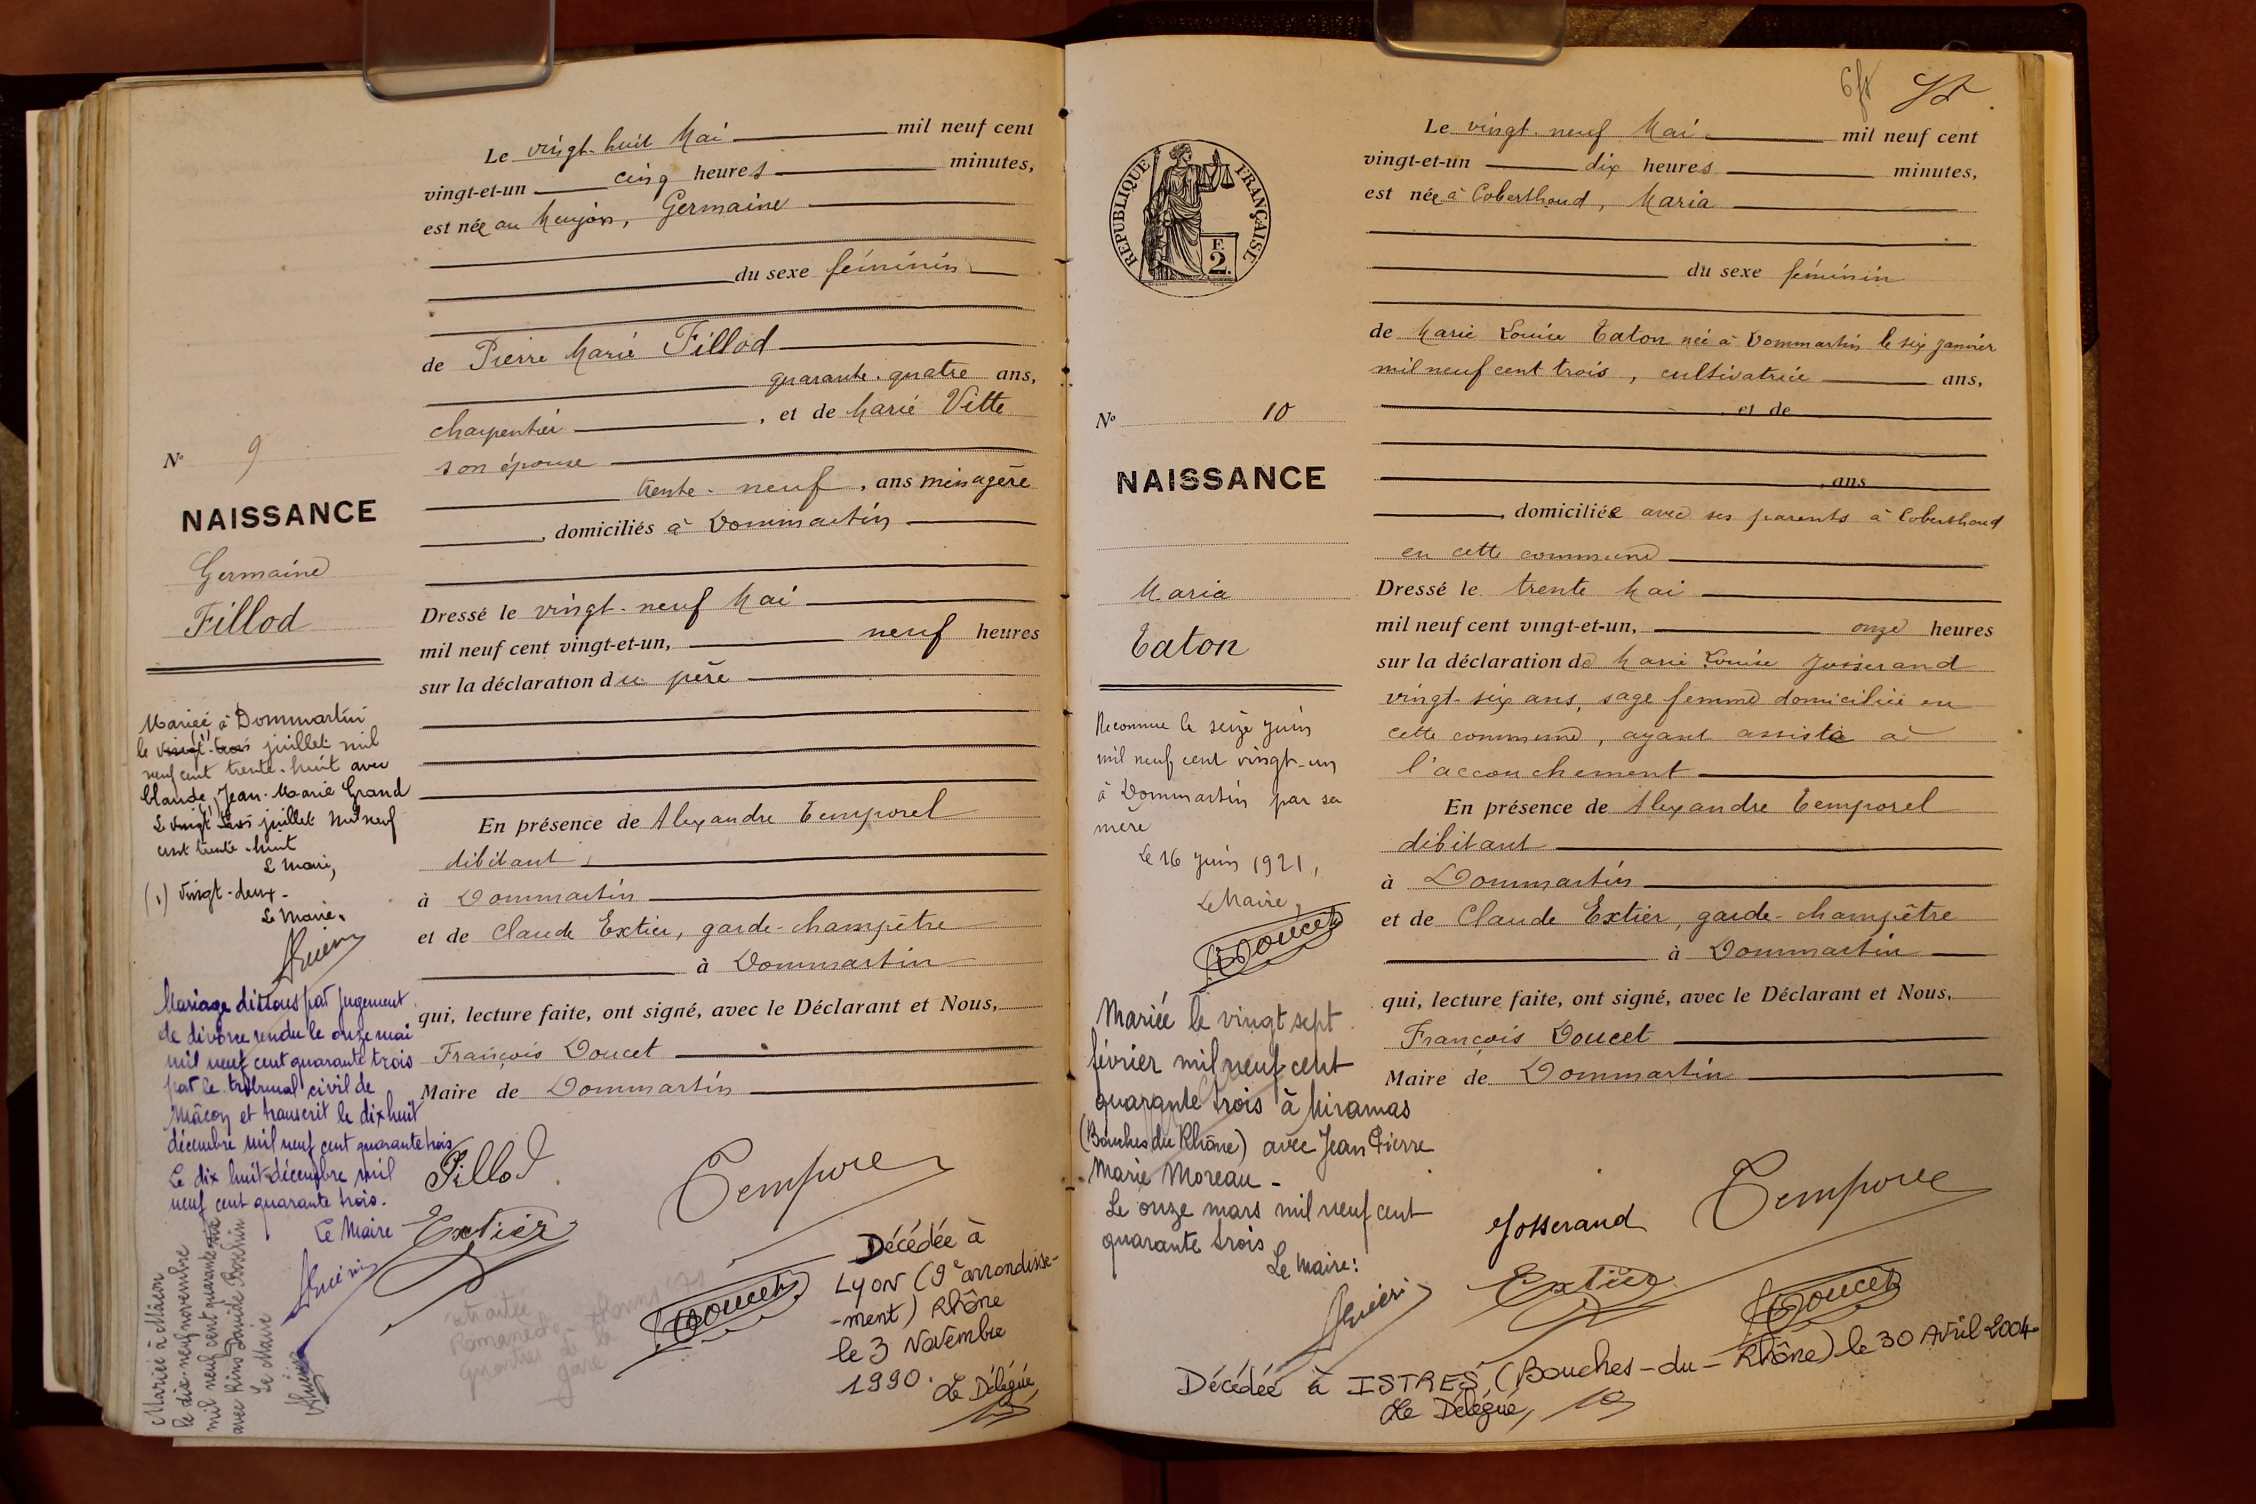 Le vingt-huit Mai mil neuf cent
vingt-et-un cinq heures minutes,
est née au Meujon, Germaine
du sexe féminin
de Pierre Marie Fillod
quarante-quatre ans,
charpentier, et de Marie Vitte
son épouse
trente-neuf, ans ménagère
, domiciliés à Dommartin
Dressé le vingt-neuf Mai
mil neuf cent vingt-et-un, neuf heures
sur la déclaration du père
En présence de Alexandre Temporel
débitant,
à Dommartin
et de Claude Extier, garde-champêtre
à Dommartin
qui, lecture faite, ont signé, avec le Déclarant et Nous,
François Doucet
Maire de Dommartin
Fillod
Tempore
Extier
Doucet
Décédée à
Lyon (9e arrondisse-
-ment) Rhône
le 3 Novembre
1990.
Le Délégué
retraitée
Romanèche-Thorins
Quartier de la
gare
No 9
NAISSANCE
Germaine
Fillod
Mariée à Dommartin
le (1) vingt-trois juillet mil
neuf cent trente-huit avec
Claude Jean-Marie Grand
Le (1) vingt trois juillet mil neuf
cent trente-huit
Le Maire,
(1) vingt-deux-
Le Maire.
Guérin
Mariage dissous par jugement
de divorce rendu le onze mai
mil neuf cent quarante trois
par le tribunal civil de
Mâcon et transcrit le dix huit
décembre mil neuf cent quarante trois
Le dix huit décembre mil
neuf cent quarante trois.
Le Maire
Guérin
Mariée à Mâcon
le dix-neuf novembre
mil neuf cent quarante six
avec
Le Maire
Guérin
57.
RÉPUBLIQUE FRANÇAISE
F.
2.
No 10
NAISSANCE
Maria
Taton
Reconnue le seize Juin
mil neuf cent vingt-un
à Dommartin par sa
mère
Le 16 Juin 1921,
Le Maire,
Doucet
Mariée le vingt sept
février mil neuf cent
quarante trois à Miramas
(Bouches du Rhône) avec Jean Pierre
Marie Moreau -
Le onze mars mil neuf cent
quarante trois
Le Maire:
Guérin
Le vingt-neuf Mai mil neuf cent
vingt-et-un dix heures minutes,
est née à Coberthoud, Maria
du sexe féminin
de Marie Louise Taton née à Dommartin le six Janvier
mil neuf cent trois, cultivatrice ans,
et de
, ans
, domiciliée avec ses parents à Coberthoud
en cette commune
Dressé le trente Mai
mil neuf cent vingt-et-un, onze heures
sur la déclaration de Marie Louise Josserand
vingt-six ans, sage femme domiciliée en
cette commune, ayant assisté à
l'accouchement
En présence de Alexandre Temporel
débitant
à Dommartin
et de Claude Extier, garde-champêtre
à Dommartin
qui, lecture faite, ont signé, avec le Déclarant et Nous,
François Doucet
Maire de Dommartin
Josserand
Tempore
Extier
Doucet
Décédée à ISTRES (Bouches-du-Rhône) le 30 Avril 2004.
Le Délégué,